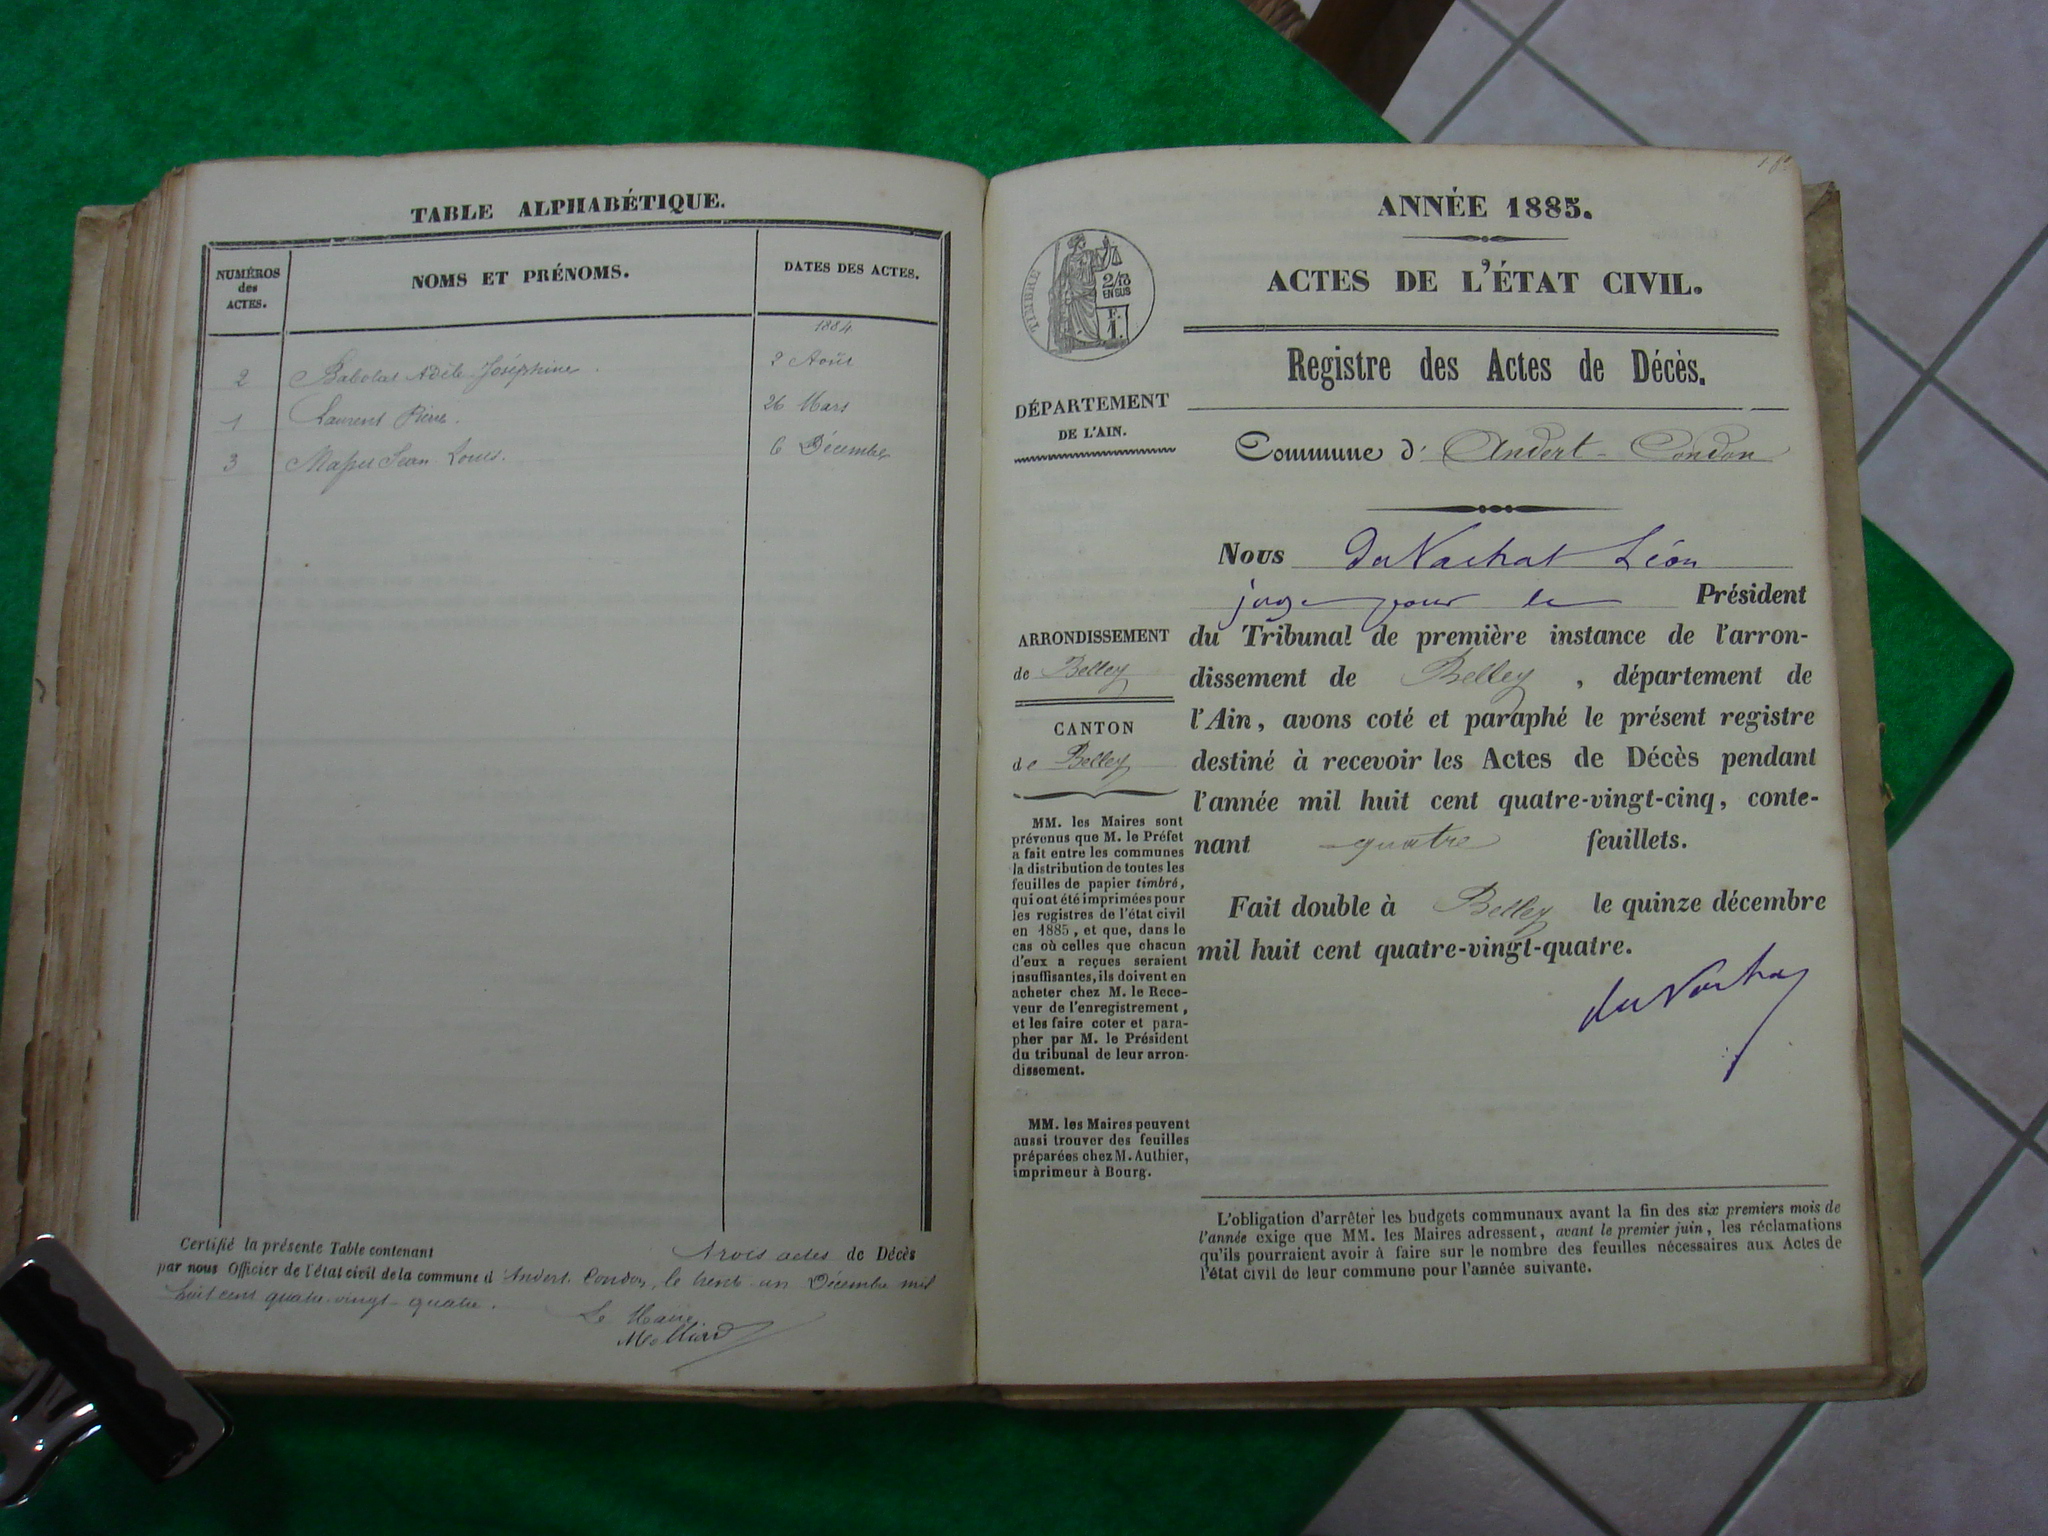 TABLE ALPHABÉTIQUE.
NUMÉROS
des
ACTES.
NOMS ET PRÉNOMS.
DATES DES ACTES.
1884
2 Babolat Adèle Joséphine. 2 Août
1 Laurent Pierre. 26 Mars
3 Jean Louis. 6 Décembre
Certifié la présente Table contenant trois actes de Décès
par nous Officier de l'état civil de la commune d'Andert-Condon, le trente un Décembre mil
huit cent quatre-vingt-quatre.
Le Maire
ANNÉE 1885.
ACTES DE L'ÉTAT CIVIL.
TIMBRE
2/10
EN SUS
F.
1.
Registre des Actes de Décès.
DÉPARTEMENT
DE L'AIN.
Commune d'Andert-Condon
Nous du Vachat Léon
juge pour le Président
du Tribunal de première instance de l'arron-
dissement de Belley, département de
l'Ain, avons coté et paraphé le présent registre
destiné à recevoir les Actes de Décès pendant
l'année mil huit cent quatre-vingt-cinq, conte-
nant quatre feuillets.
Fait double à Belley le quinze décembre
mil huit cent quatre-vingt-quatre.
du Vachat
ARRONDISSEMENT
de Belley
CANTON
de Belley
MM. les Maires sont
prévenus que M. le Préfet
a fait entre les communes
la distribution de toutes les
feuilles de papier timbré,
qui ont été imprimées pour
les registres de l'état civil
en 1885, et que, dans le
cas où celles que chacun
d'eux a reçues seraient
insuffisantes, ils doivent en
acheter chez M. le Rece-
veur de l'enregistrement,
et les faire coter et para-
pher par M. le Président
du tribunal de leur arron-
dissement.
MM. les Maires peuvent
aussi trouver des feuilles
préparées chez M. Authier,
imprimeur à Bourg.
L'obligation d'arrêter les budgets communaux avant la fin des six premiers mois de
l'année exige que MM. les Maires adressent, avant le premier juin, les réclamations
qu'ils pourraient avoir à faire sur le nombre des feuilles nécessaires aux Actes de
l'état civil de leur commune pour l'année suivante.